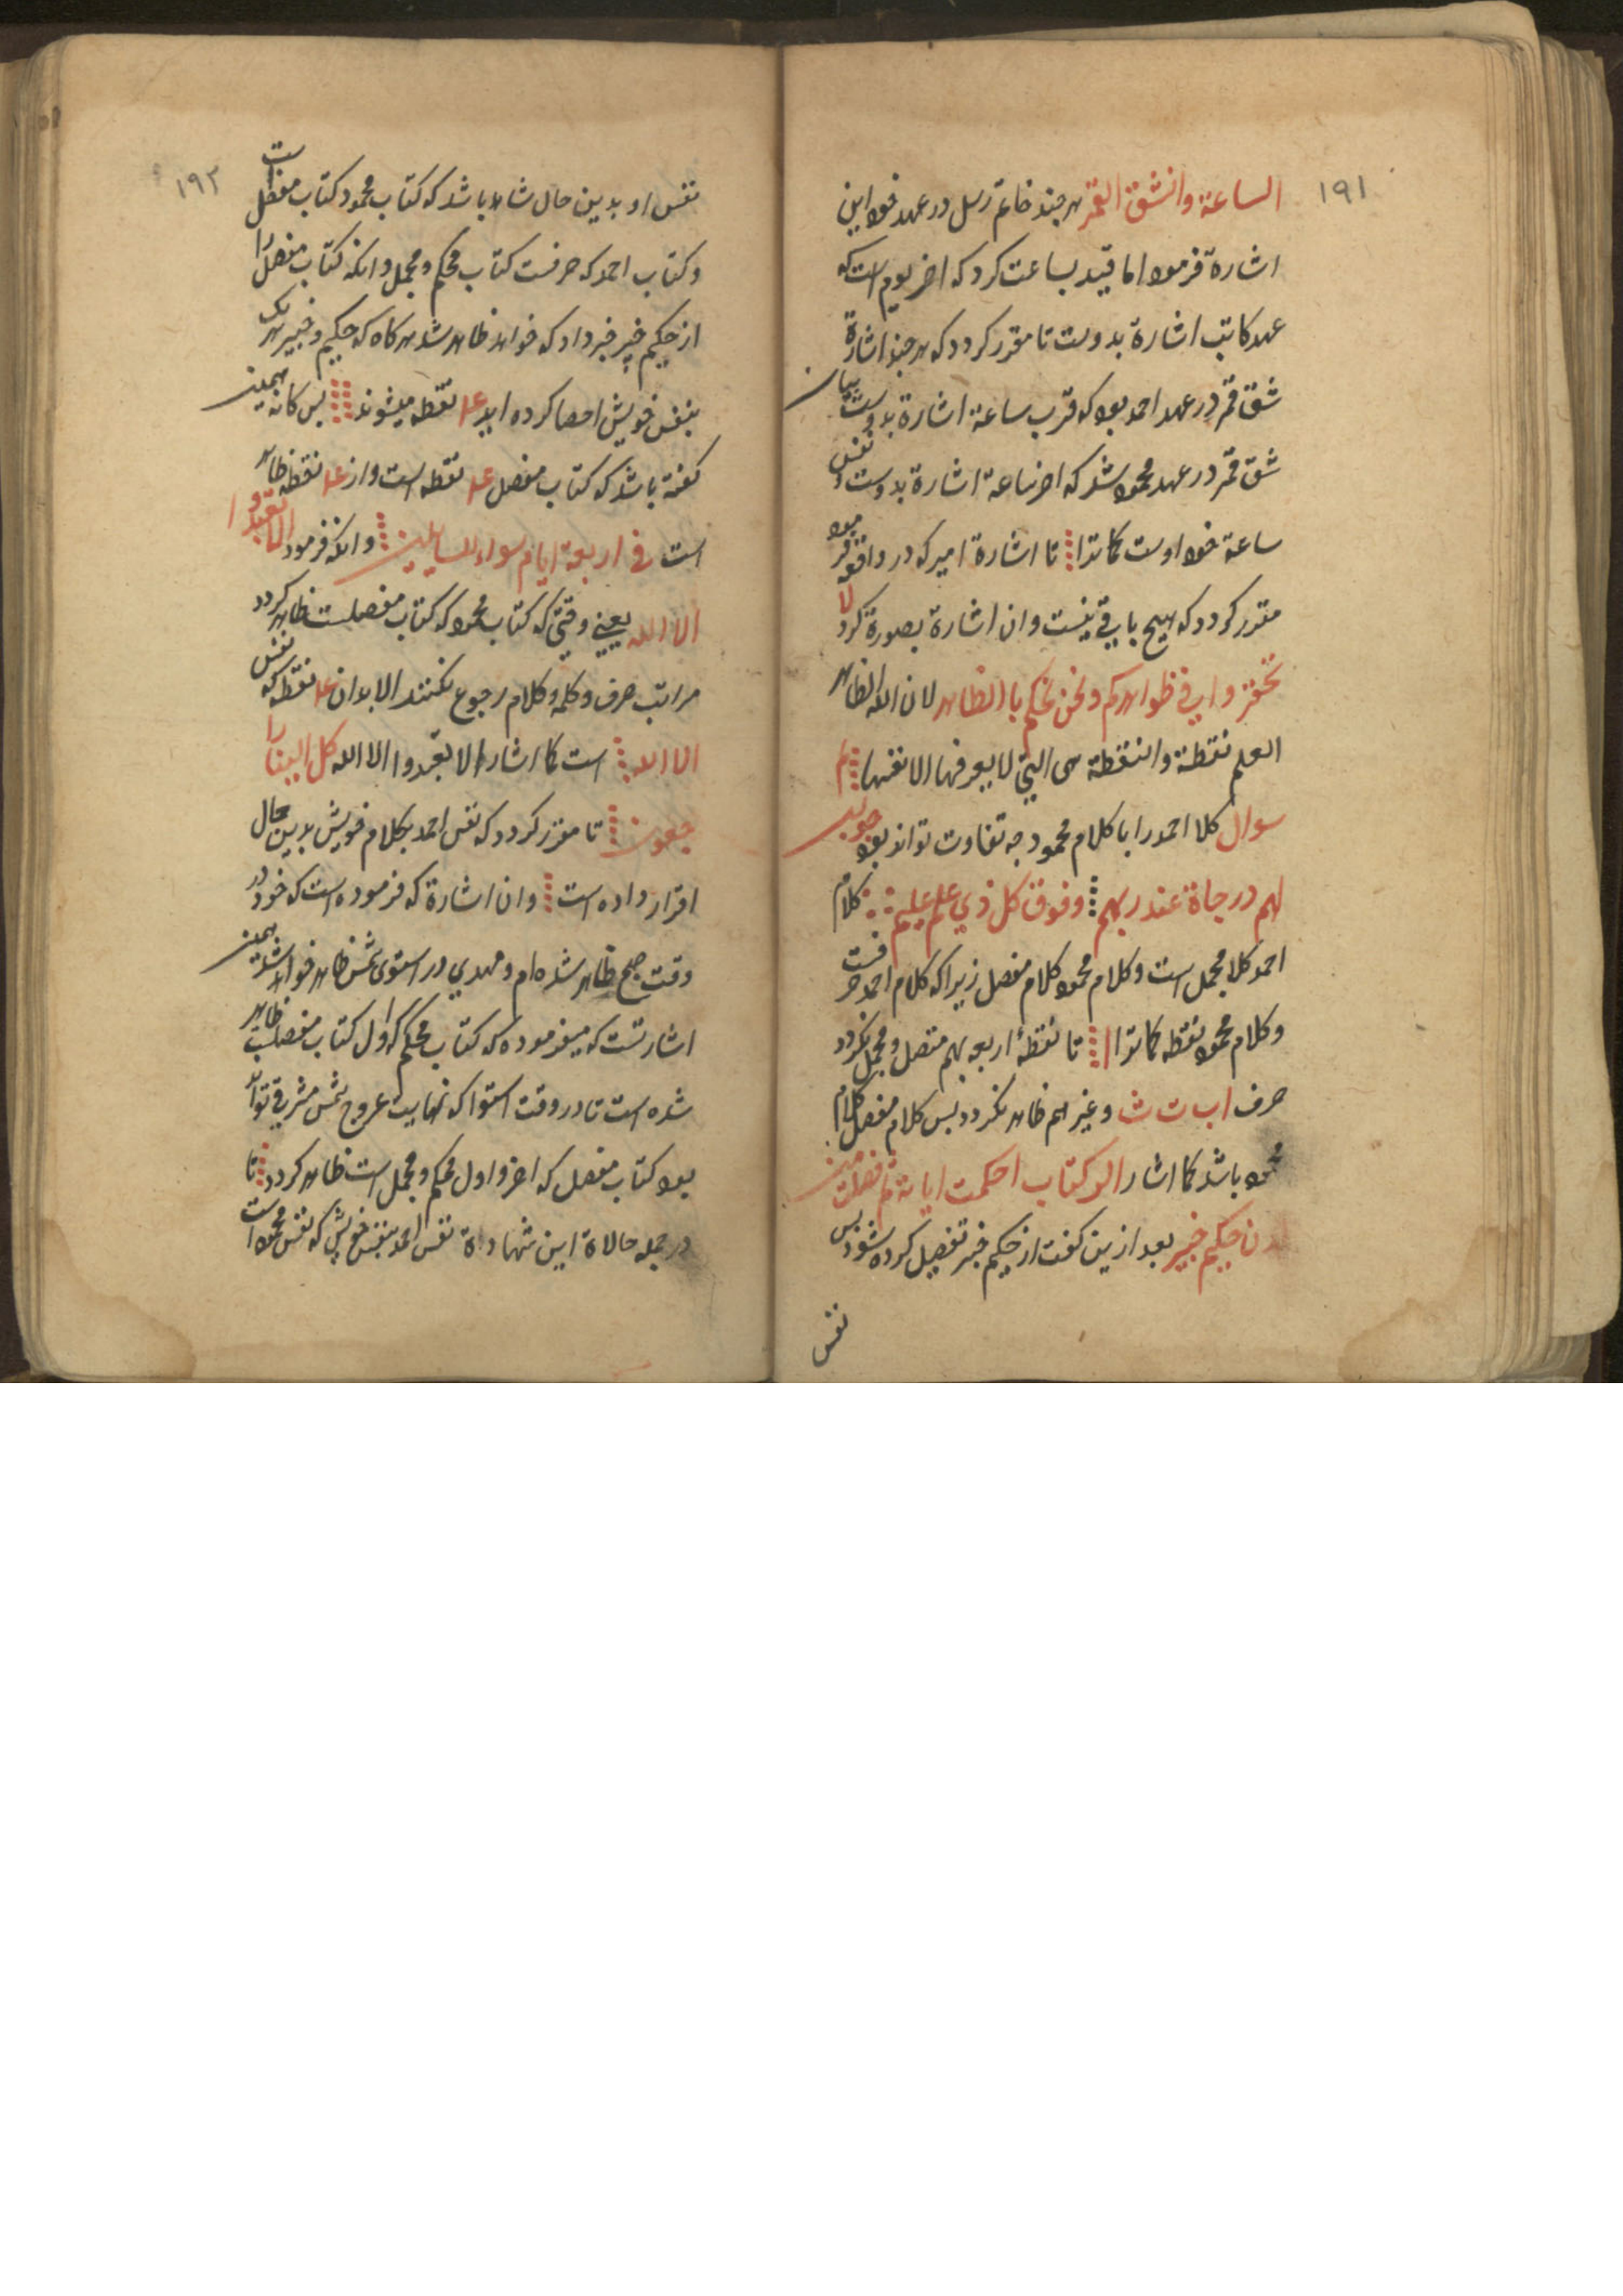 ١٩١
الساعة وانشق القمر هرچند خاتم رسل در عهد خود این
اشارة فرمود اما قید بساعت کرد که اخر یوم است که
عهد کاتب اشارة بدوست تا مقرر کردد که هرچند اشارة
شق قمر در عهد احمد بود که قرب ساعة اشارة بدوست بیان
شق قمر در عهد محمود شد که اخر ساعة اشارة بدوست و نفس
ساعة خود اوست کماترا تا اشارة امیر که در واقعه فرمود
مقرر کردد که هیچ باقی نیست وان اشارة بصورة کرد لا
تحقروا فی ظواهرکم ونحن نحکم با الظاهر لان الله الظاهر
العلم نقطة والنقطة هی التی لا یعرفها الا نفسها
سوال کلا احمد را با کلام محمود چه تفاوت تواند بود جواب
لهم درجاة عند ربهم وفوق کل ذی علم علیم کلام
احمد کلا مجمل است وکلام محمود کلام مفصل زیرا که کلام احمد حرفست
وکلام محمود نقطه کماترا تا نقطهٔ اربعه بهم متصل و مجمل نکردد
حرف ا ب ت ث وغیر هم ظاهر نکردد بس کلام مفصل کلام
محمود باشد کما اشار الر کتاب احکمت ایاته ثم فصلت من
لدن حکیم خبیر بعد ازین کفت از حکیم خبر تفصیل کرده شود بس
نفس
١٩٢
نفس او بدین حال شاهد باشد که کتاب محمود کتاب مفصل است
و کتاب احمد که حرفست کتاب محکم و مجمل وانکه کتاب مفصل را
از حکیم خبیر خبر داد که خواهد ظاهر شد هرکاه که حکیم و خبیر هر یک
بنفس خویش احصا کرده اید نقطه میشوند بس کانه همین
کفته باشد که کتاب مفصل نقطه است واز نقطه ظاهر
است فی اربعة ایام سواء للسایلین وانکه فرمود الا تعبدوا
الا الله یعنی وقتی که کتاب محمود که کتاب مفصلست ظاهر کردد
مراتب حرف وکلمه وکلام رجوع نکنند الا بدان نقطه که نفس
الا الله است کما اشار الا تعبدوا الا الله کل الینا را
جعون تا مقرر کردد که نفس احمد بکلام خویش بدین حال
اقرار داده است وان اشارة که فرموده است که خود در
وقت صبح ظاهر شده ام و مهدی در استوی شمس ظاهر خواهد شد همین
اشارتست که میفرموده که کتاب محکم که اول کتاب مفصلست ظاهر
شده است تا در وقت استوا که نهایت عروج شمس مشرقی تواند
بود کتاب مفصل که اخر و اول محکم و مجمل است ظاهر کردد تا
در جمله حالاة این شهاداة نفس احمد بنفس خویش که نفس محمود است